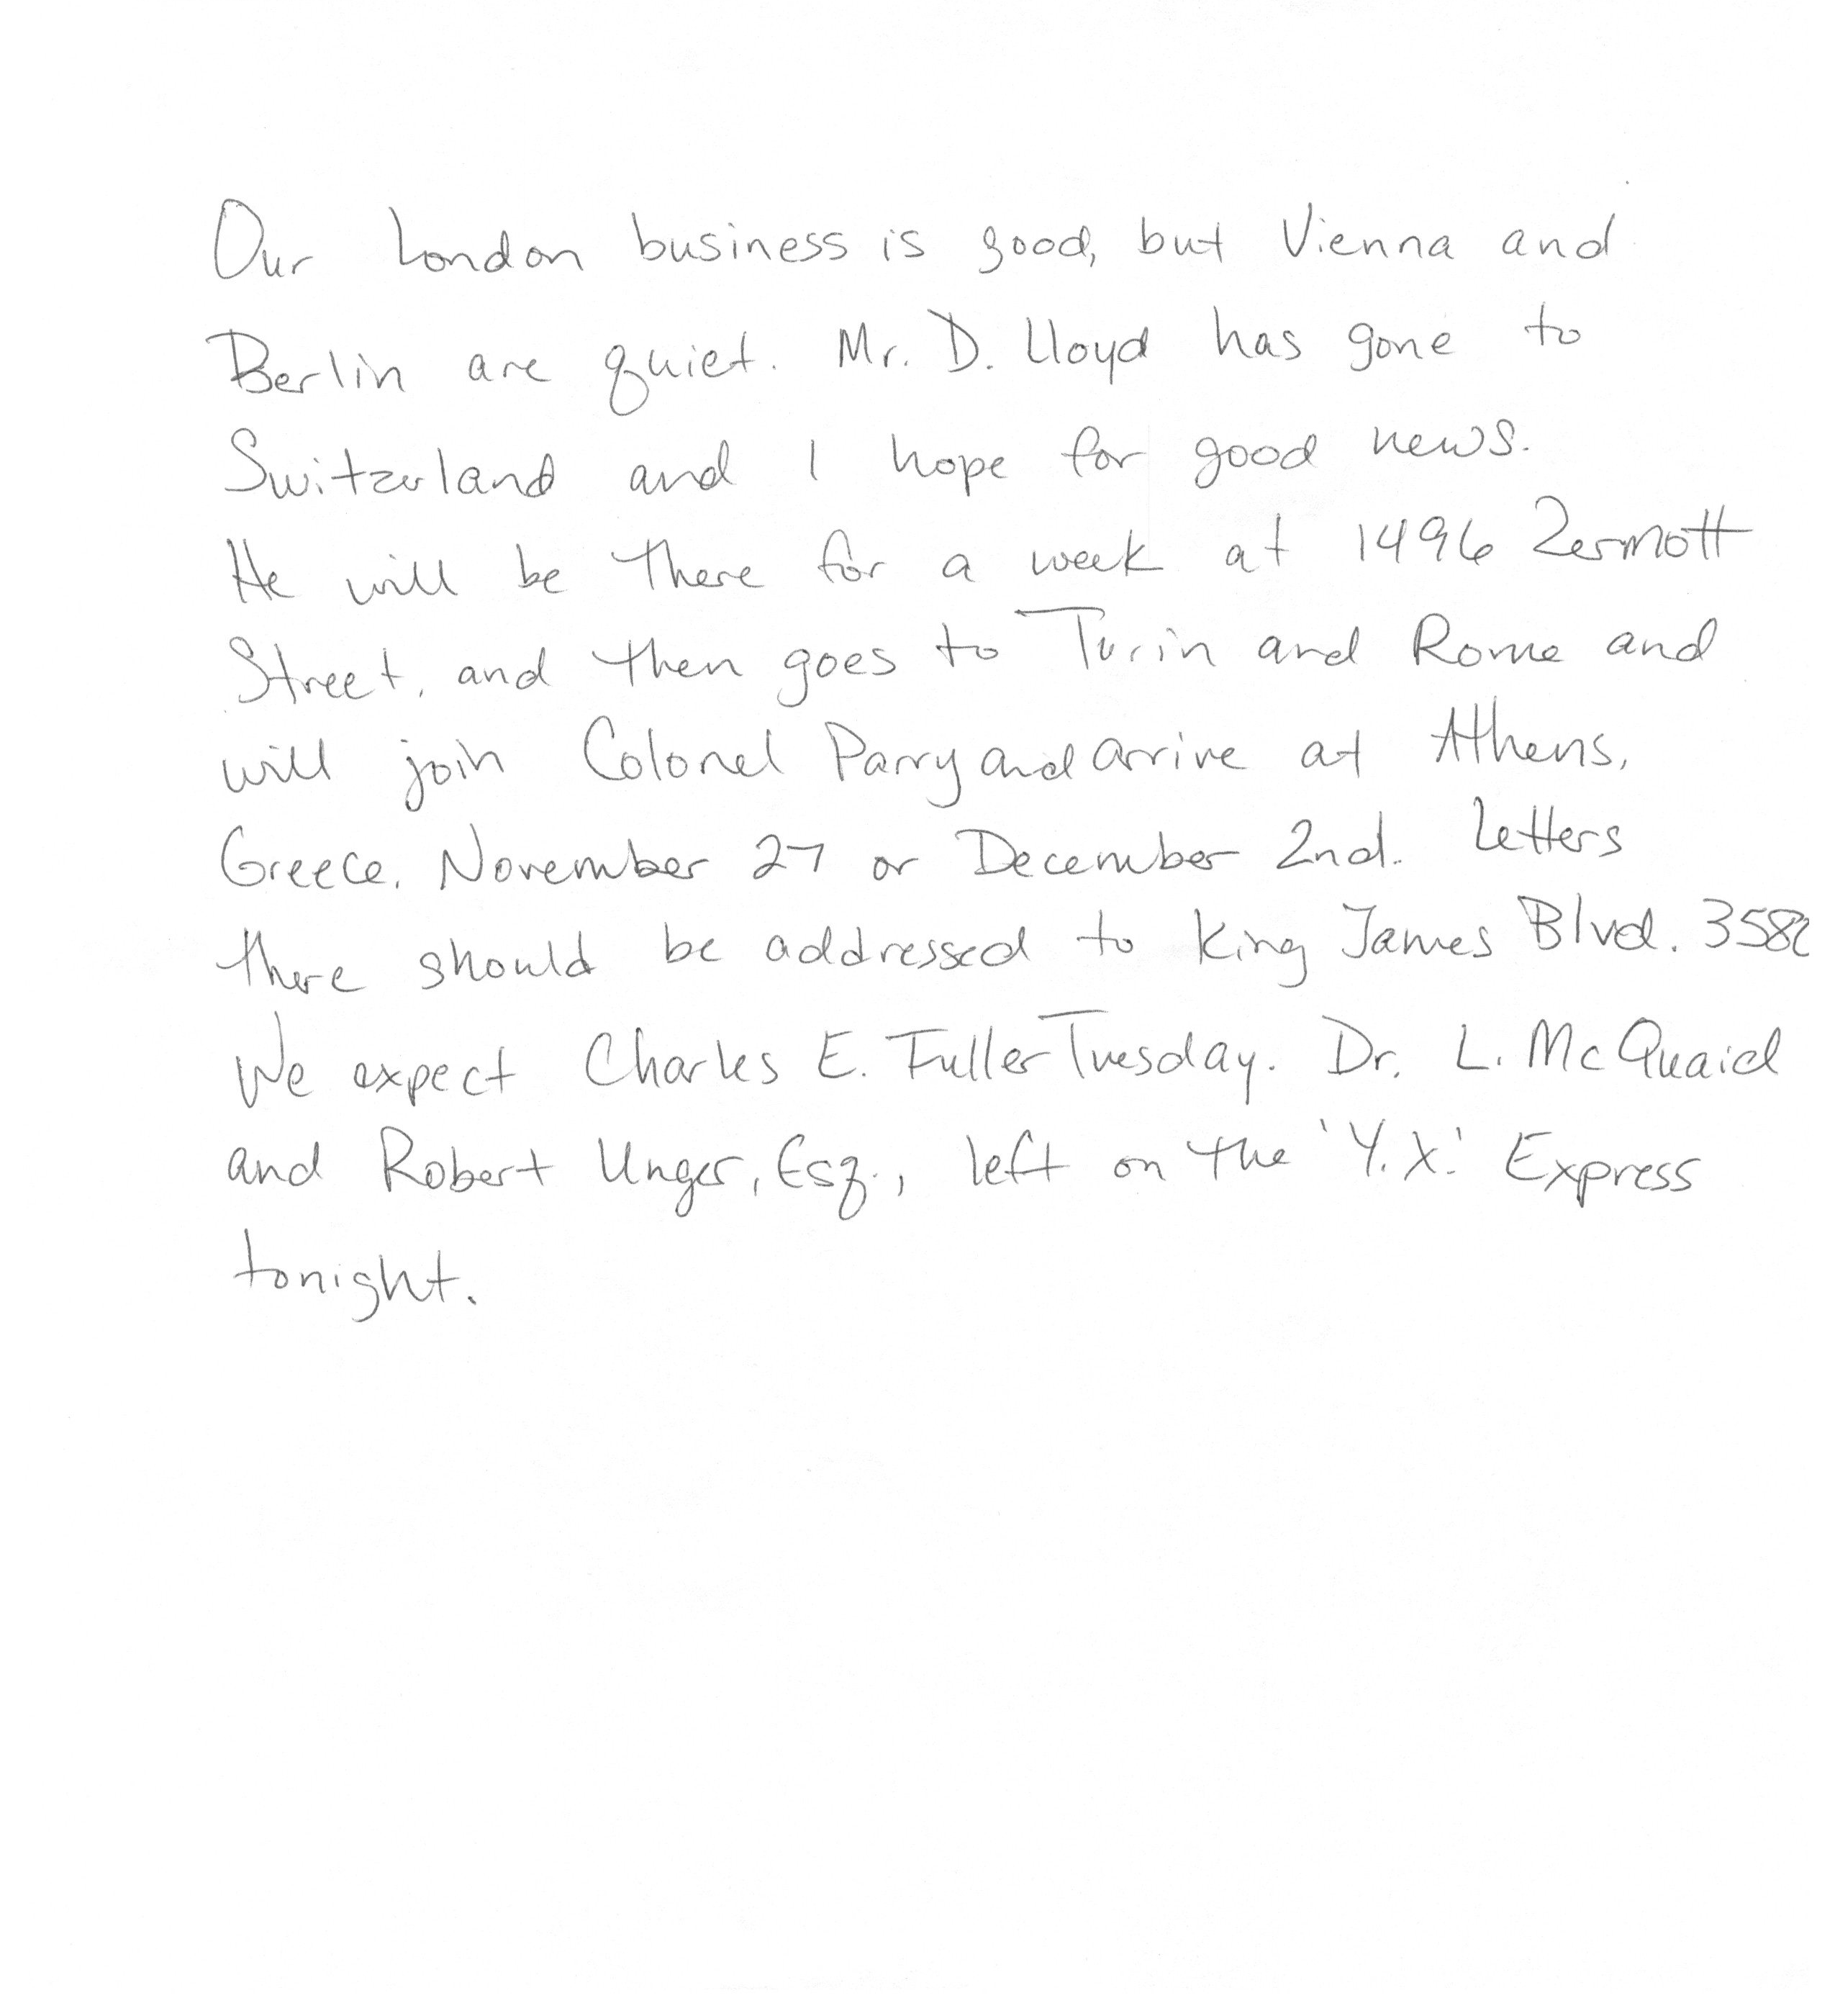 Our London business is good, but Vienna and
Berlin are quiet. Mr. D. Lloyd has gone to
Switzerland and I hope for good news.
He will be there for a week at 1496 Zermott
Street, and then goes to Turin and Rome and
will join Colonel Parry and arrive at Athens,
Greece, November 27 or December 2nd. Letters
there should be addressed to King James Blvd. 3582
We expect Charles E. Fuller Tuesday. Dr. L. McQuaid
and Robert Unger, Esq., left on the 'Y.X.' Express
tonight.